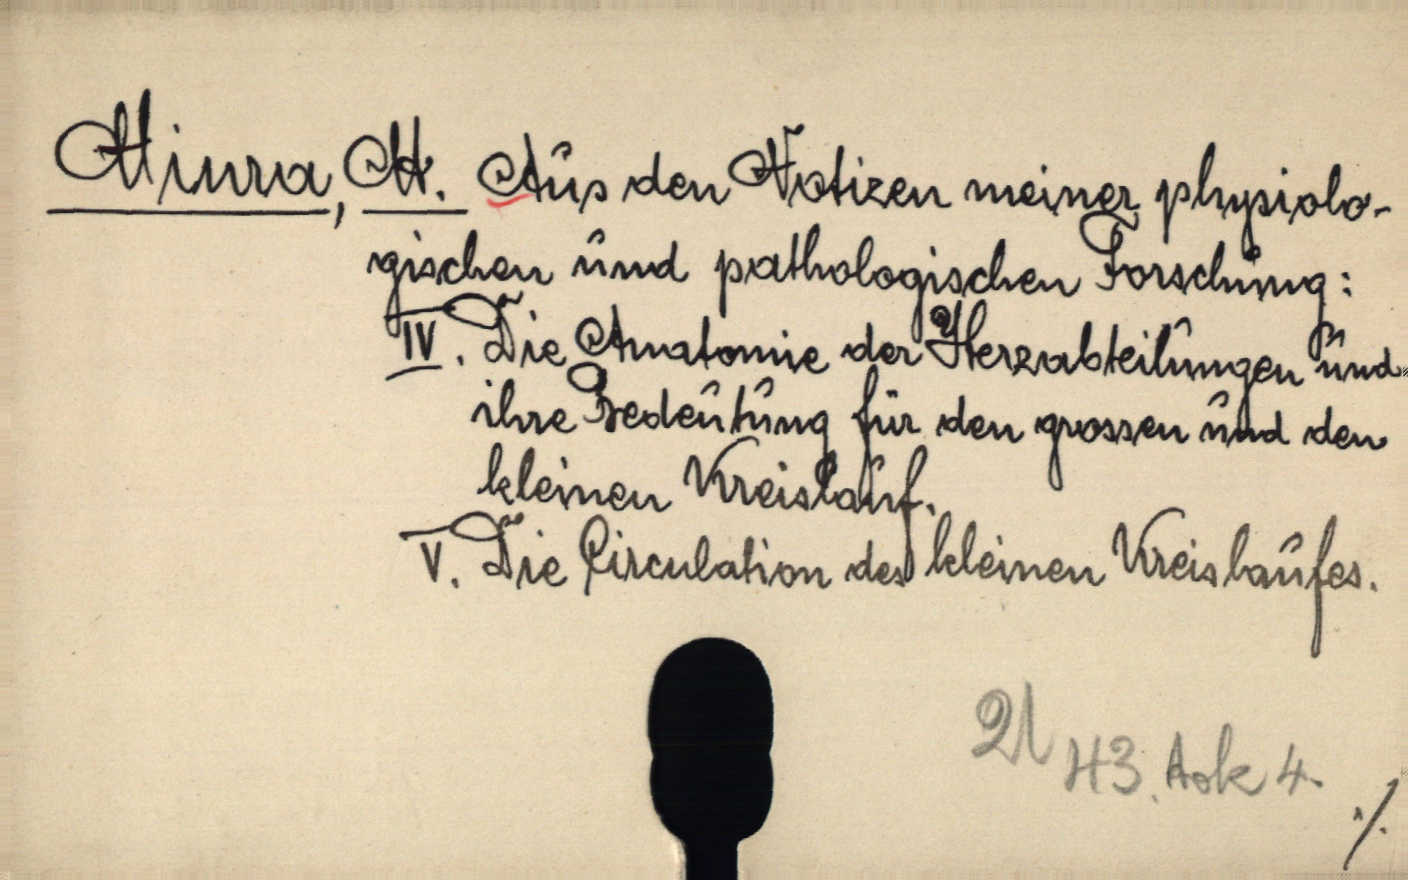 Miura, M. Aus den Notizen meiner physiolo-
gischen und pathologischen Forschung:
IV. Die Anatomie der Herzabteilungen und
ihre Bedeutung für den grossen und den
kleinen Kreislauf.
V. Die Circulation des kleinen Kreislaufes.
43. Aok 4.
./.